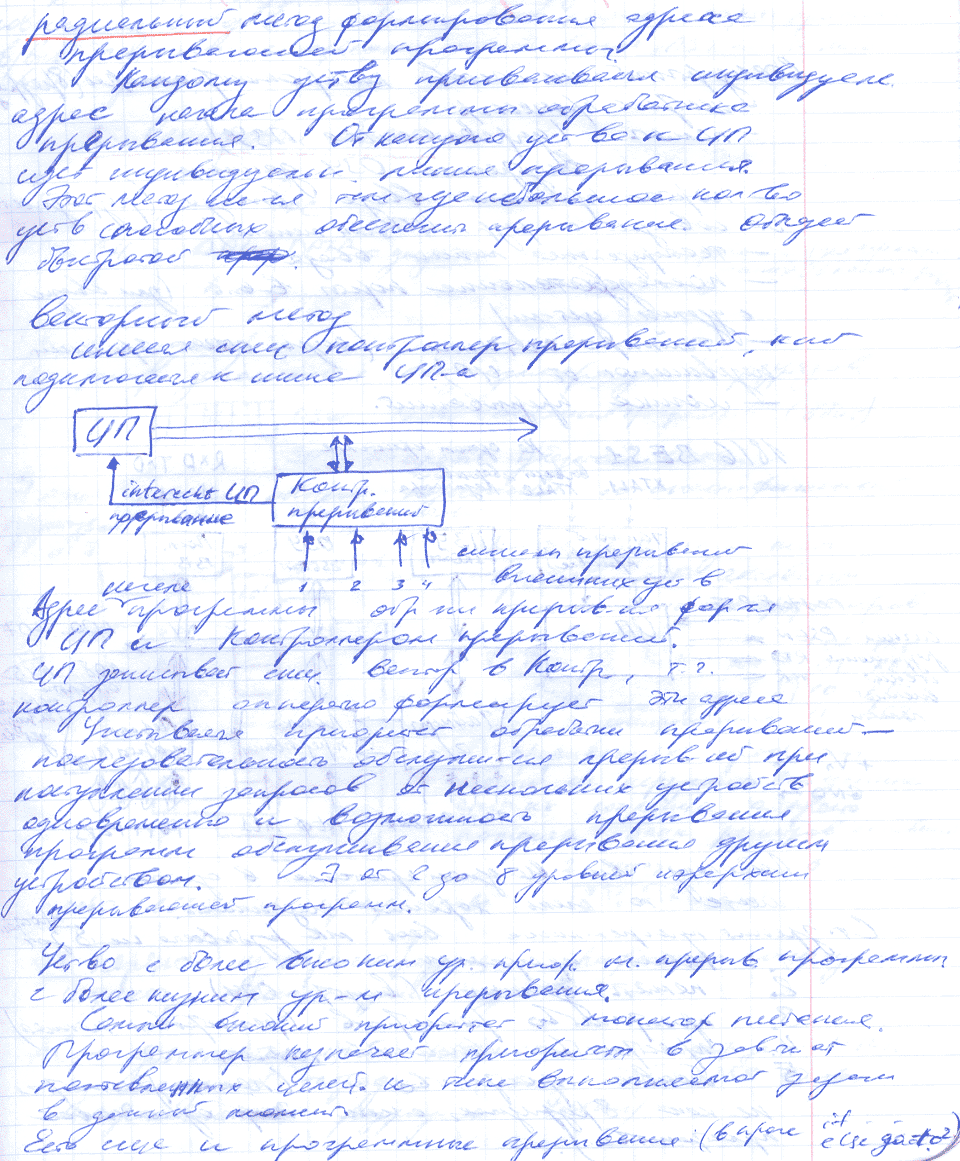 радиальный метод формирования адреса
прерывающей программы
Каждому уству присваивается индивидуальн.
адрес начала программы обработчика
прерывания. От каждого уства к ЦП
идёт индивидуальн. линия прерывания.
Этот метод небольшое кол-во
уств способных обеспечить прерывание. обладает
быстротой
Векторный метод
имеется спец контроллер прерываний, кот
подключается к шине ЦП-а
ЦП
interrupt ЦП
прерывание
Контр.
прерываний
1 2 3 4
сигналы прерываний
внешних уств
начала
Адрес программы обр-ки прерыв-ия форм-ся
ЦП и Контроллером прерываний.
ЦП записывает спец. вектор в Контр,
контроллер формирует эти адреса
Учитывается приоритет обработки прерываний —
последовательность обслуж-ия прерыв-ий при
поступлении запросов от нескольких устройств
одновременно и возможность прерывания
программ обслуживания прерывания другим
устройством. ∃ от 2 до 8 уровней иерархии
прерывающей программ.
Уство с более высоким ур. приор. м. прерыв. программы
с более низким ур-м прерывания.
Самый высший приоритет монитор питания.
Программер назначает приоритеты в зав-ти от
поставленных целей и типа выполняемой задачи
в данный момент
Есть еще и программные прерывания: (в проге if else